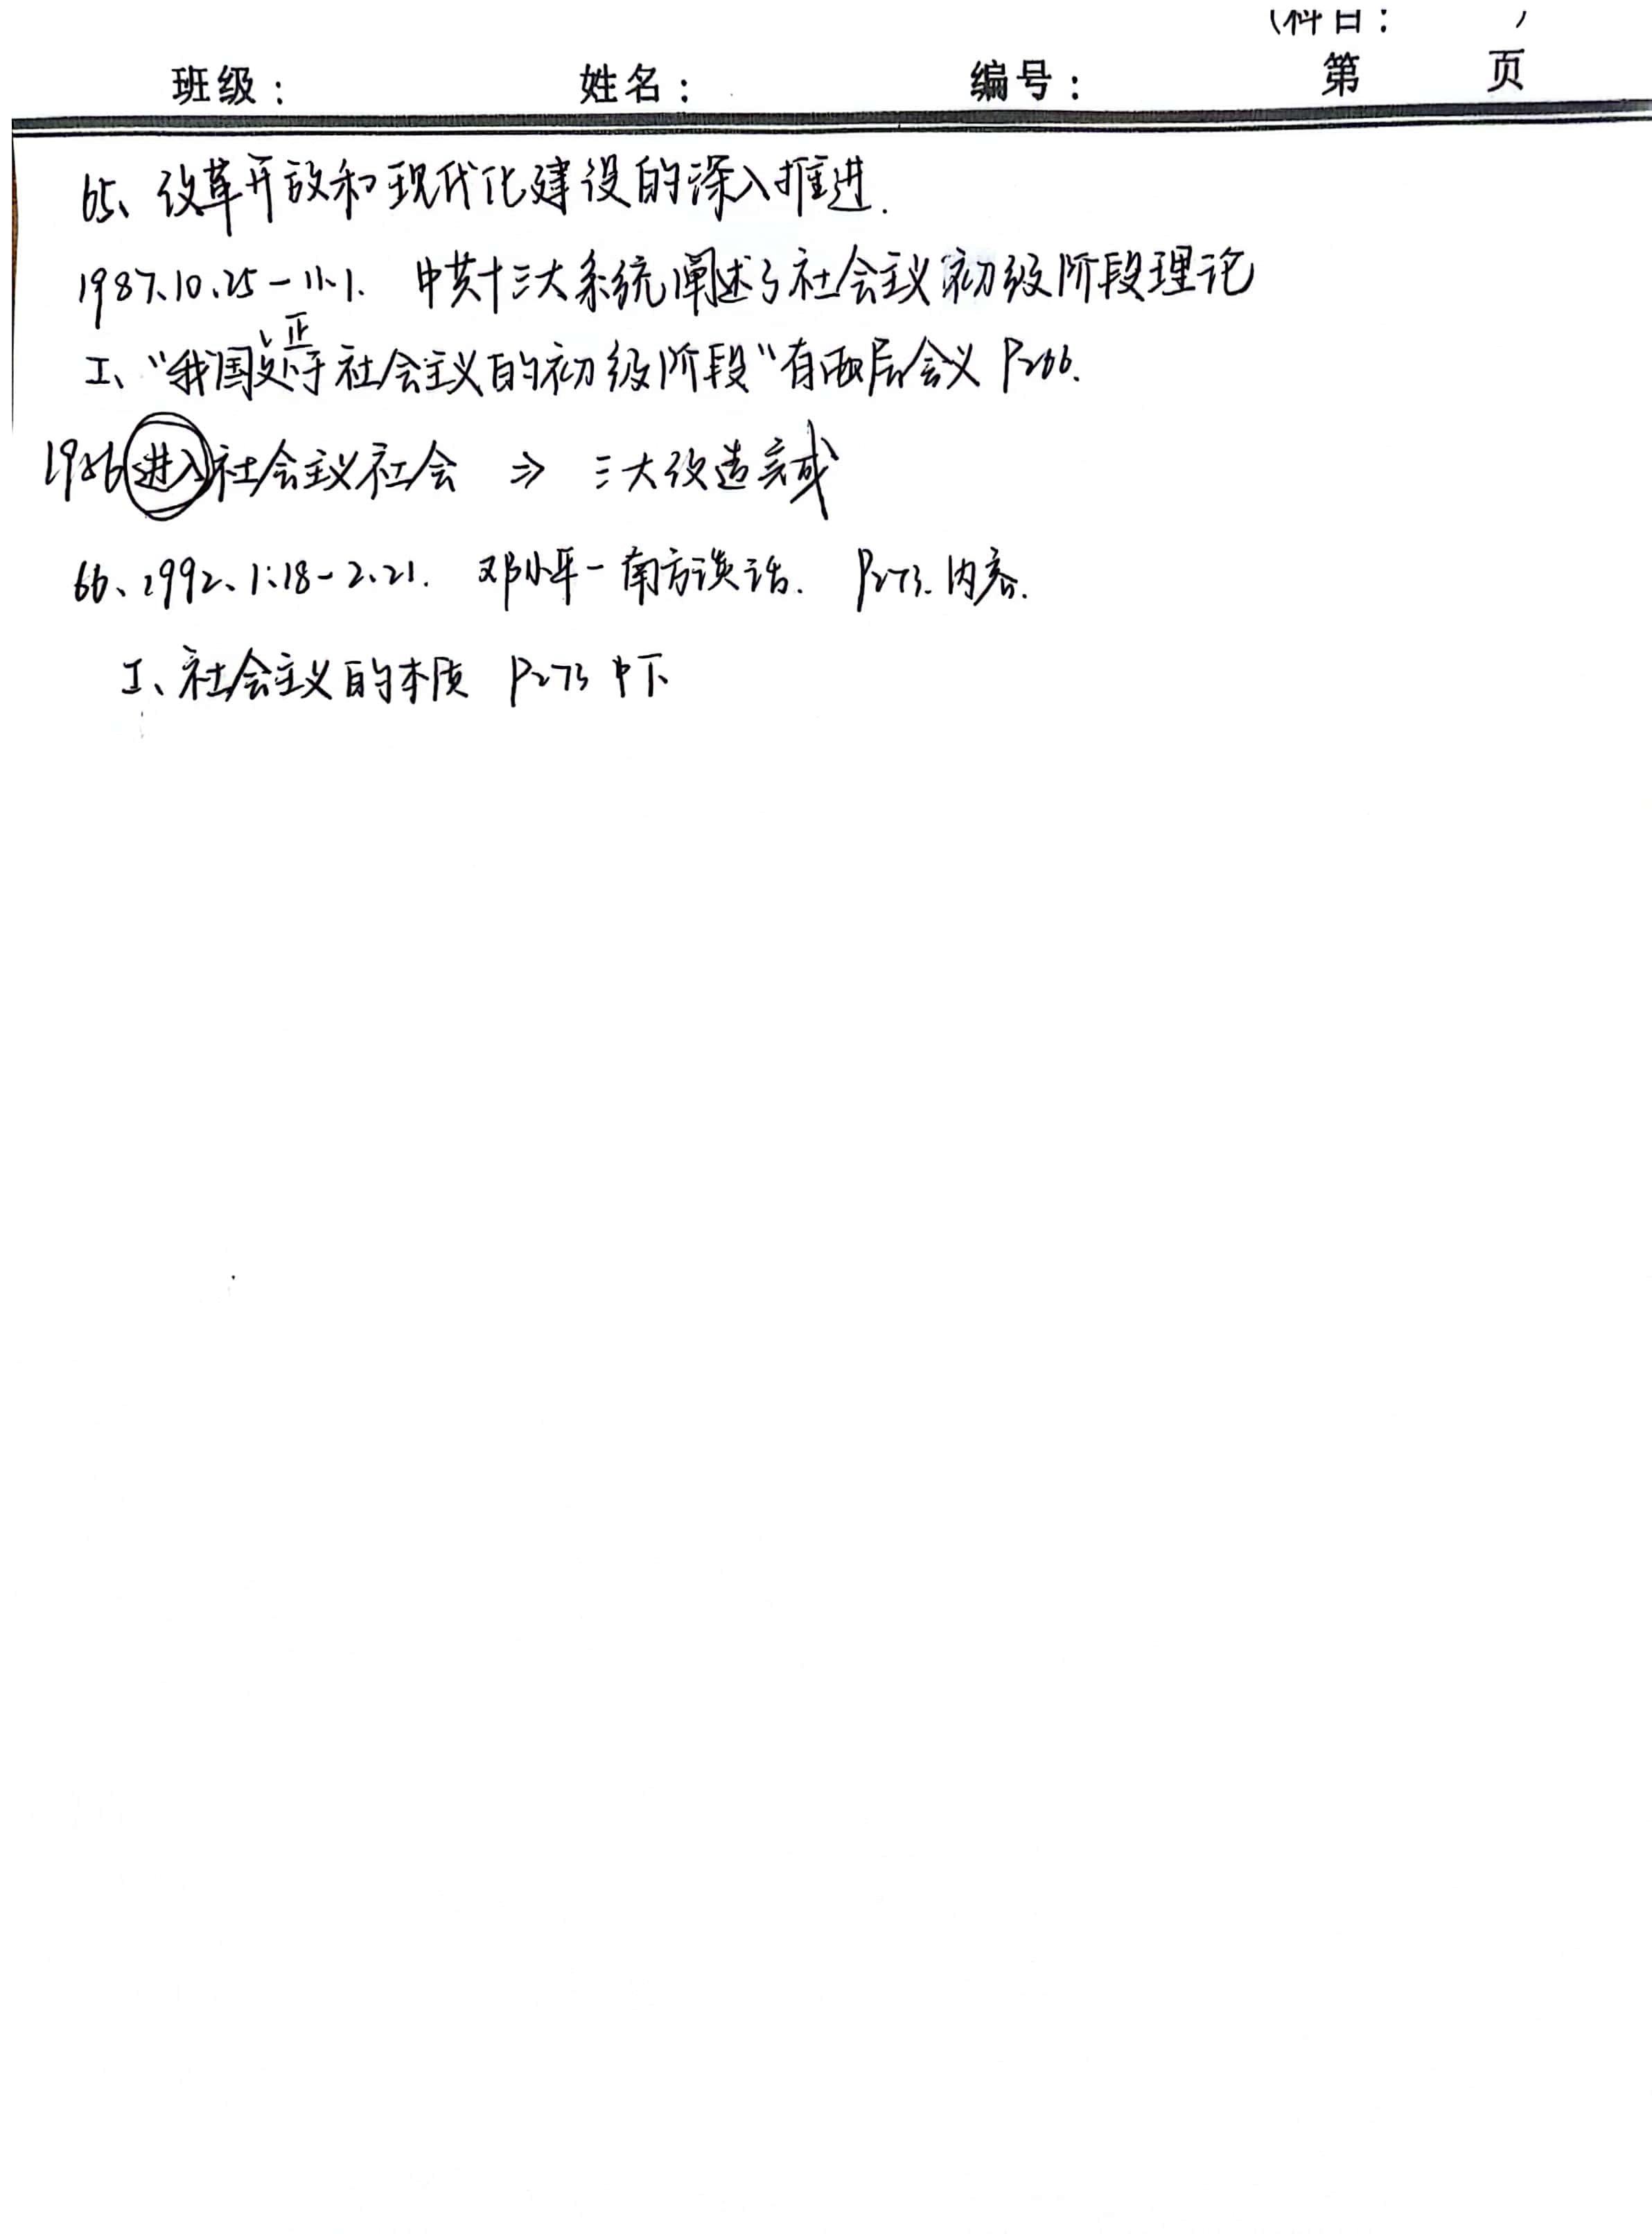 (科目:          )
班级:          姓名:          编号:          第     页
65、改革开放和现代化建设的深入推进.
1987.10.25-11.1. 中共十三大系统阐述了社会主义初级阶段理论
I、“我国正处于社会主义的初级阶段”有两层会议 P266.
1956进入社会主义社会 ⇒ 三大改造完成
66、1992、1.18-2.21. 邓小平-南方谈话. P273.内容.
I、社会主义的本质 P273 中下